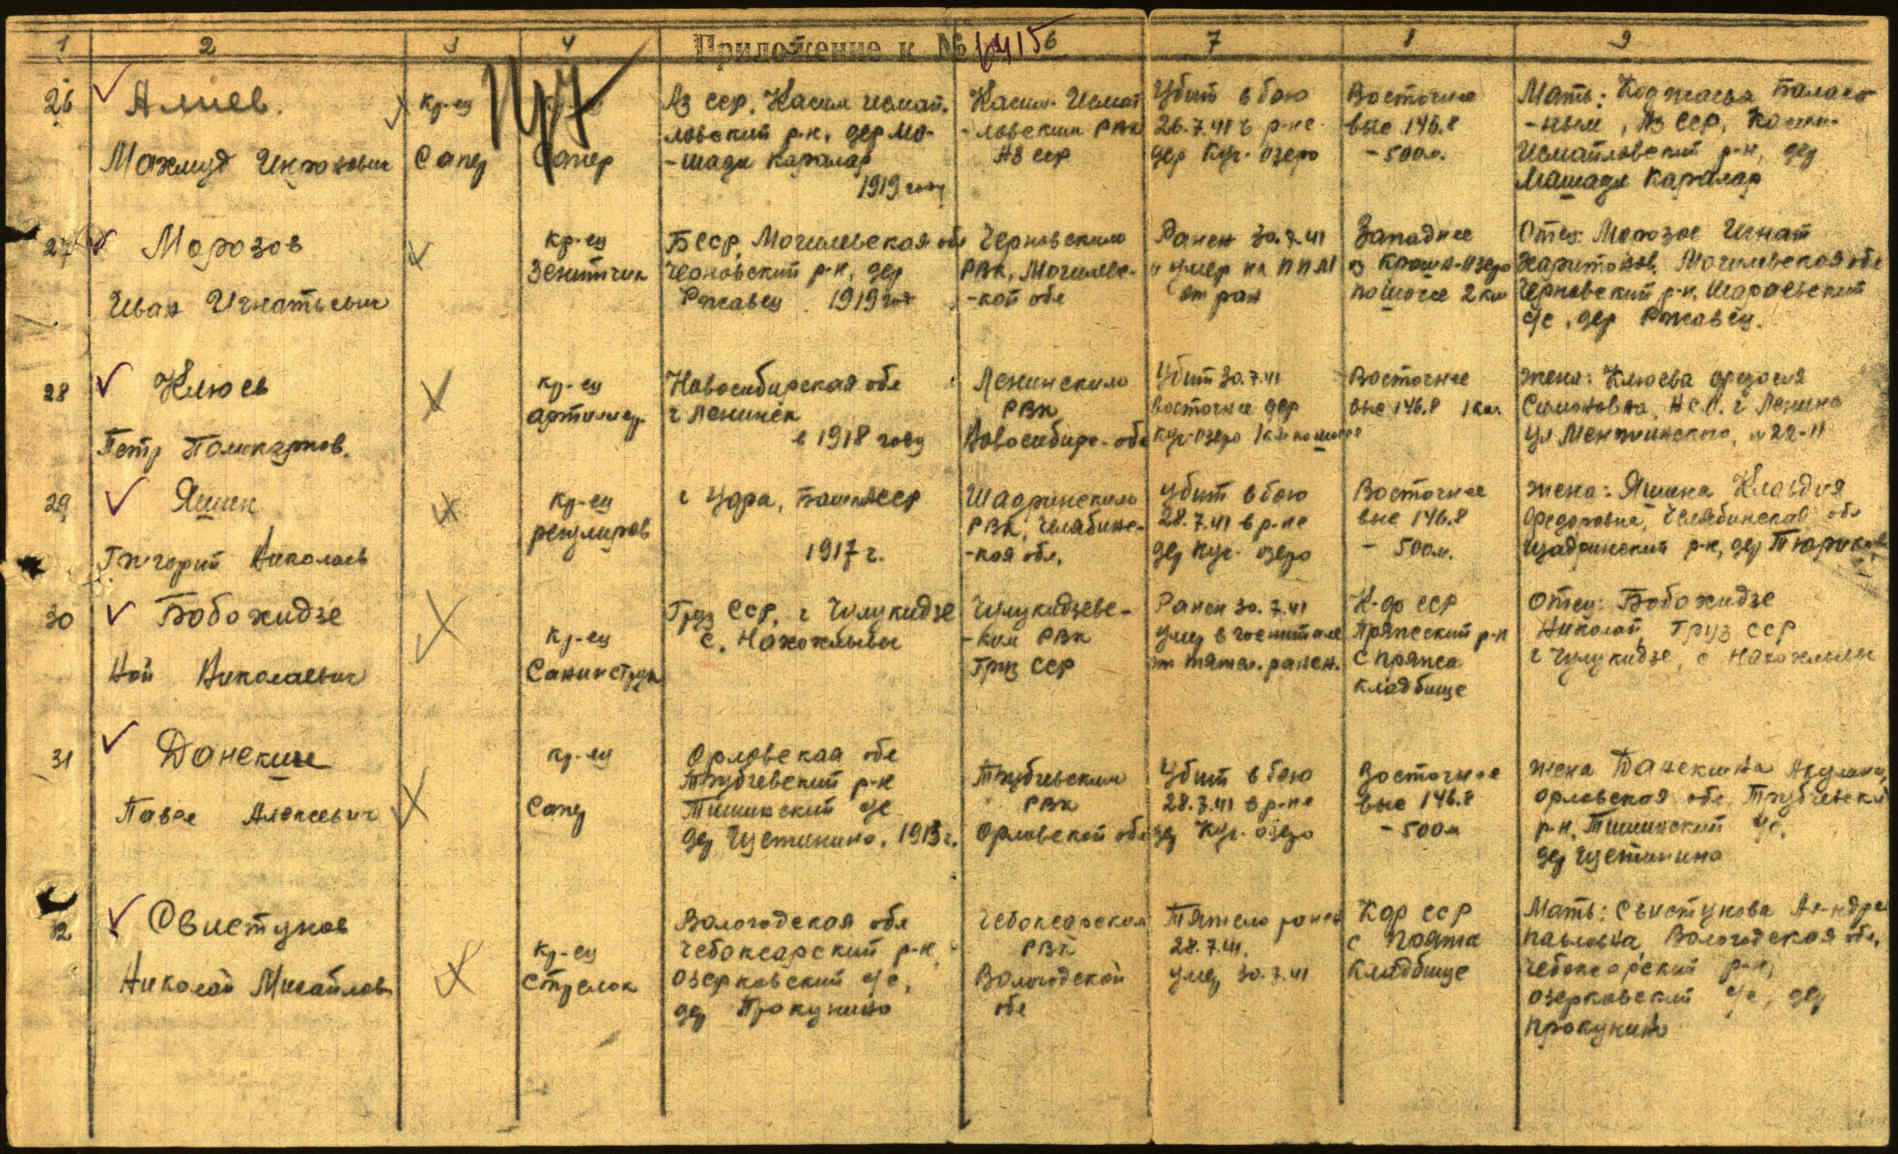 1 2 3 4 Приложение к № 6415 6 7 8 9
26 Алиев.
Махмуд
Кр-ец
Сапер
Сапер
Аз сср, Касим Исмай-
ловский р-н, дер Ма-
-шади Каралар
1919 году
Касим-Исмай
-ловским РВК
АЗ сср
Убит в бою
26.7.41 в р-не
дер Куг-озеро
Восточнее
выс 146.8
- 500м.
Мать:
Аз ССР, Касим-
Исмайловский р-н, дер
Машади Каралар
27 Морозов
Иван Игнатьевич
Кр-ец
Зенитчик
БССР, Могилевская обл
Чериковский р-н, дер
Ржавец 1919 год
РВК, Могилевс-
-кой обл
Ранен 30.7.41
и умер на ППМ
от ран
Западнее
2 км
Отец: Морозов Игнат
Харитонов, Могилевская обл
р-н,
с/с, дер Ржавец.
28 Клюев
Петр Поликарпов.
Кр-ец
артиллер.
Новосибирская обл
г Ленинск
в 1918 году
Ленинским
РВК
Новосибирс-обл
Убит 30.7.41
восточнее дер
Куг-озеро 1км по шоссе
Восточнее
выс 146.8 1км.
жена: Клюева
Симоновна, НСО. г Ленино
ул Менжинского, № 22-11
29 Яшин
Григорий Николаев
Кр-ец
регулиров
г Уфа, БашАССР
1917 г.
Шадринским
РВК, Челябинс-
-кой обл.
Убит в бою
28.7.41 в р-не
дер Куг-озеро
Восточнее
выс 146.8
- 500м.
жена: Яшина Клавдия
Федоровна, Челябинская обл
Шадринский р-н, дер
30 Бобохидзе
Ной Николаевич
Кр-ец
Санинструк
Груз ССР, г Цулукидзе
с.
Цулукидзевс-
-ким РВК
Груз ССР
Ранен 30.7.41
умер в госпитале
от тяжел. ранен.
К-ф ССР
Пряжский р-н
с Пряжа
кладбище
Отец: Бобохидзе
Николай, Груз ССР
г Цулукидзе, с
31 Данекин
Павел Алексеевич
Кр-ец
Сапер
Орловская обл
Трубчевский р-н
Тишинский с/с
дер Устинино, 1913 г.
Трубчевским
РВК
Орловской обл
Убит в бою
28.7.41 в р-не
дер Куг-озеро
Восточнее
выс 146.8
- 500м
жена Данекина Акулина,
Орловская обл Трубчевский
р-н, Тишинский с/с.
дер Устинино
32 Свистунов
Николай Михайлов
Кр-ец
Стрелок
Вологодская обл
Чебоксарский р-н,
Озерковский с/с,
дер Прокунино
Чебоксарским
РВК
Вологодской
обл
Тяжело ранен
28.7.41.
умер 30.7.41
Кфр ССР
с Пряжа
Кладбище
Мать: Свистунова
Павловна Вологодская обл,
Чебоксарский р-н,
Озерковский с/с, дер
Прокунино